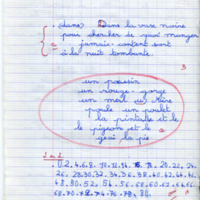 . dans Dans la
pour chercher de quoi manger
jamais content sort
à la nuit tombante.
3
un poussin
un rouge-gorge
un merl
poule un poulet
la pintade et le
le pigeon et le
geai la pie
0.2.4.6.8.10.12.14.16.18.20.22.24.
26.28.30.32.34.36.38.40.42.44.46.
48.50.52.54.56.58.60.62.64.66.
68.70.72.74.76.78.80.